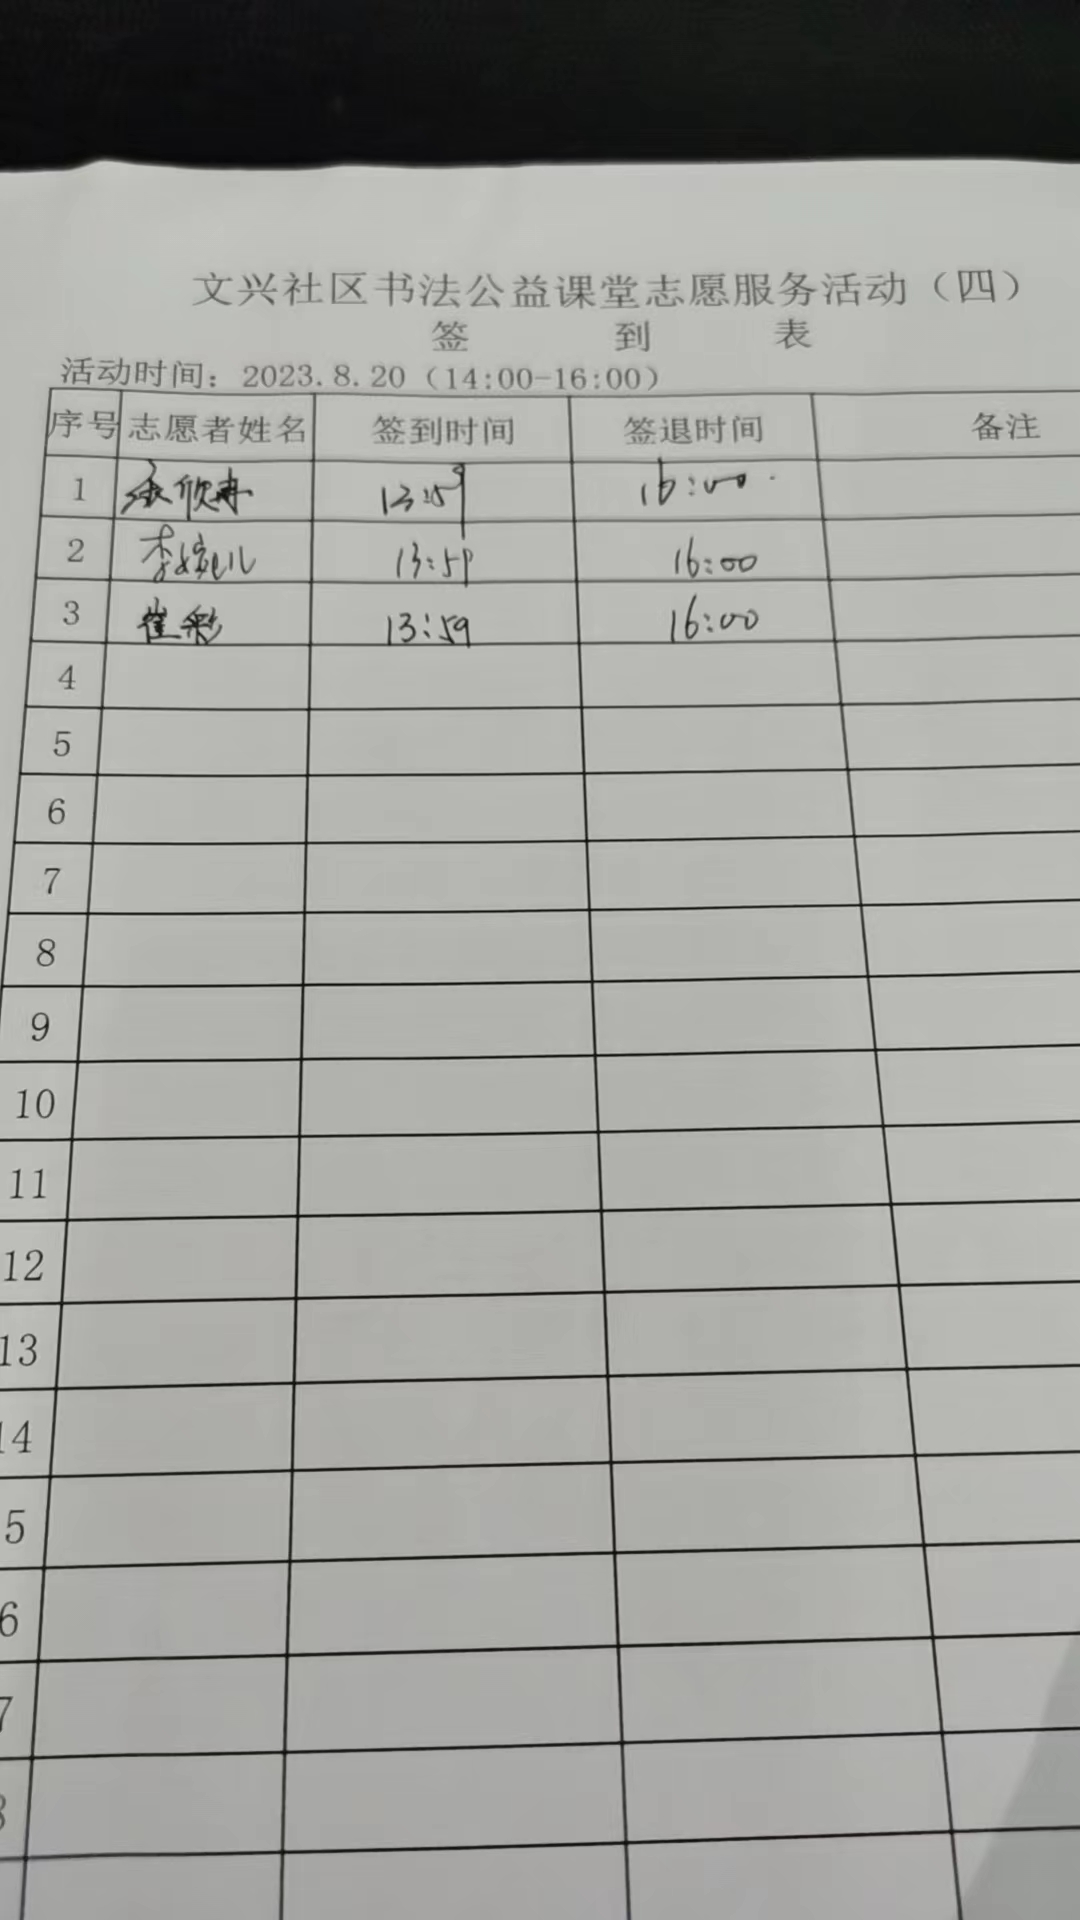 文兴社区书法公益课堂志愿服务活动（四）
签 到 表
活动时间：2023.8.20（14:00-16:00）
序号 志愿者姓名 签到时间 签退时间 备注
1 13:59 16:00
2 李婉儿 13:59 16:00
3 崔彩 13:59 16:00
4
5
6
7
8
9
10
11
12
13
14
5
6
7
8